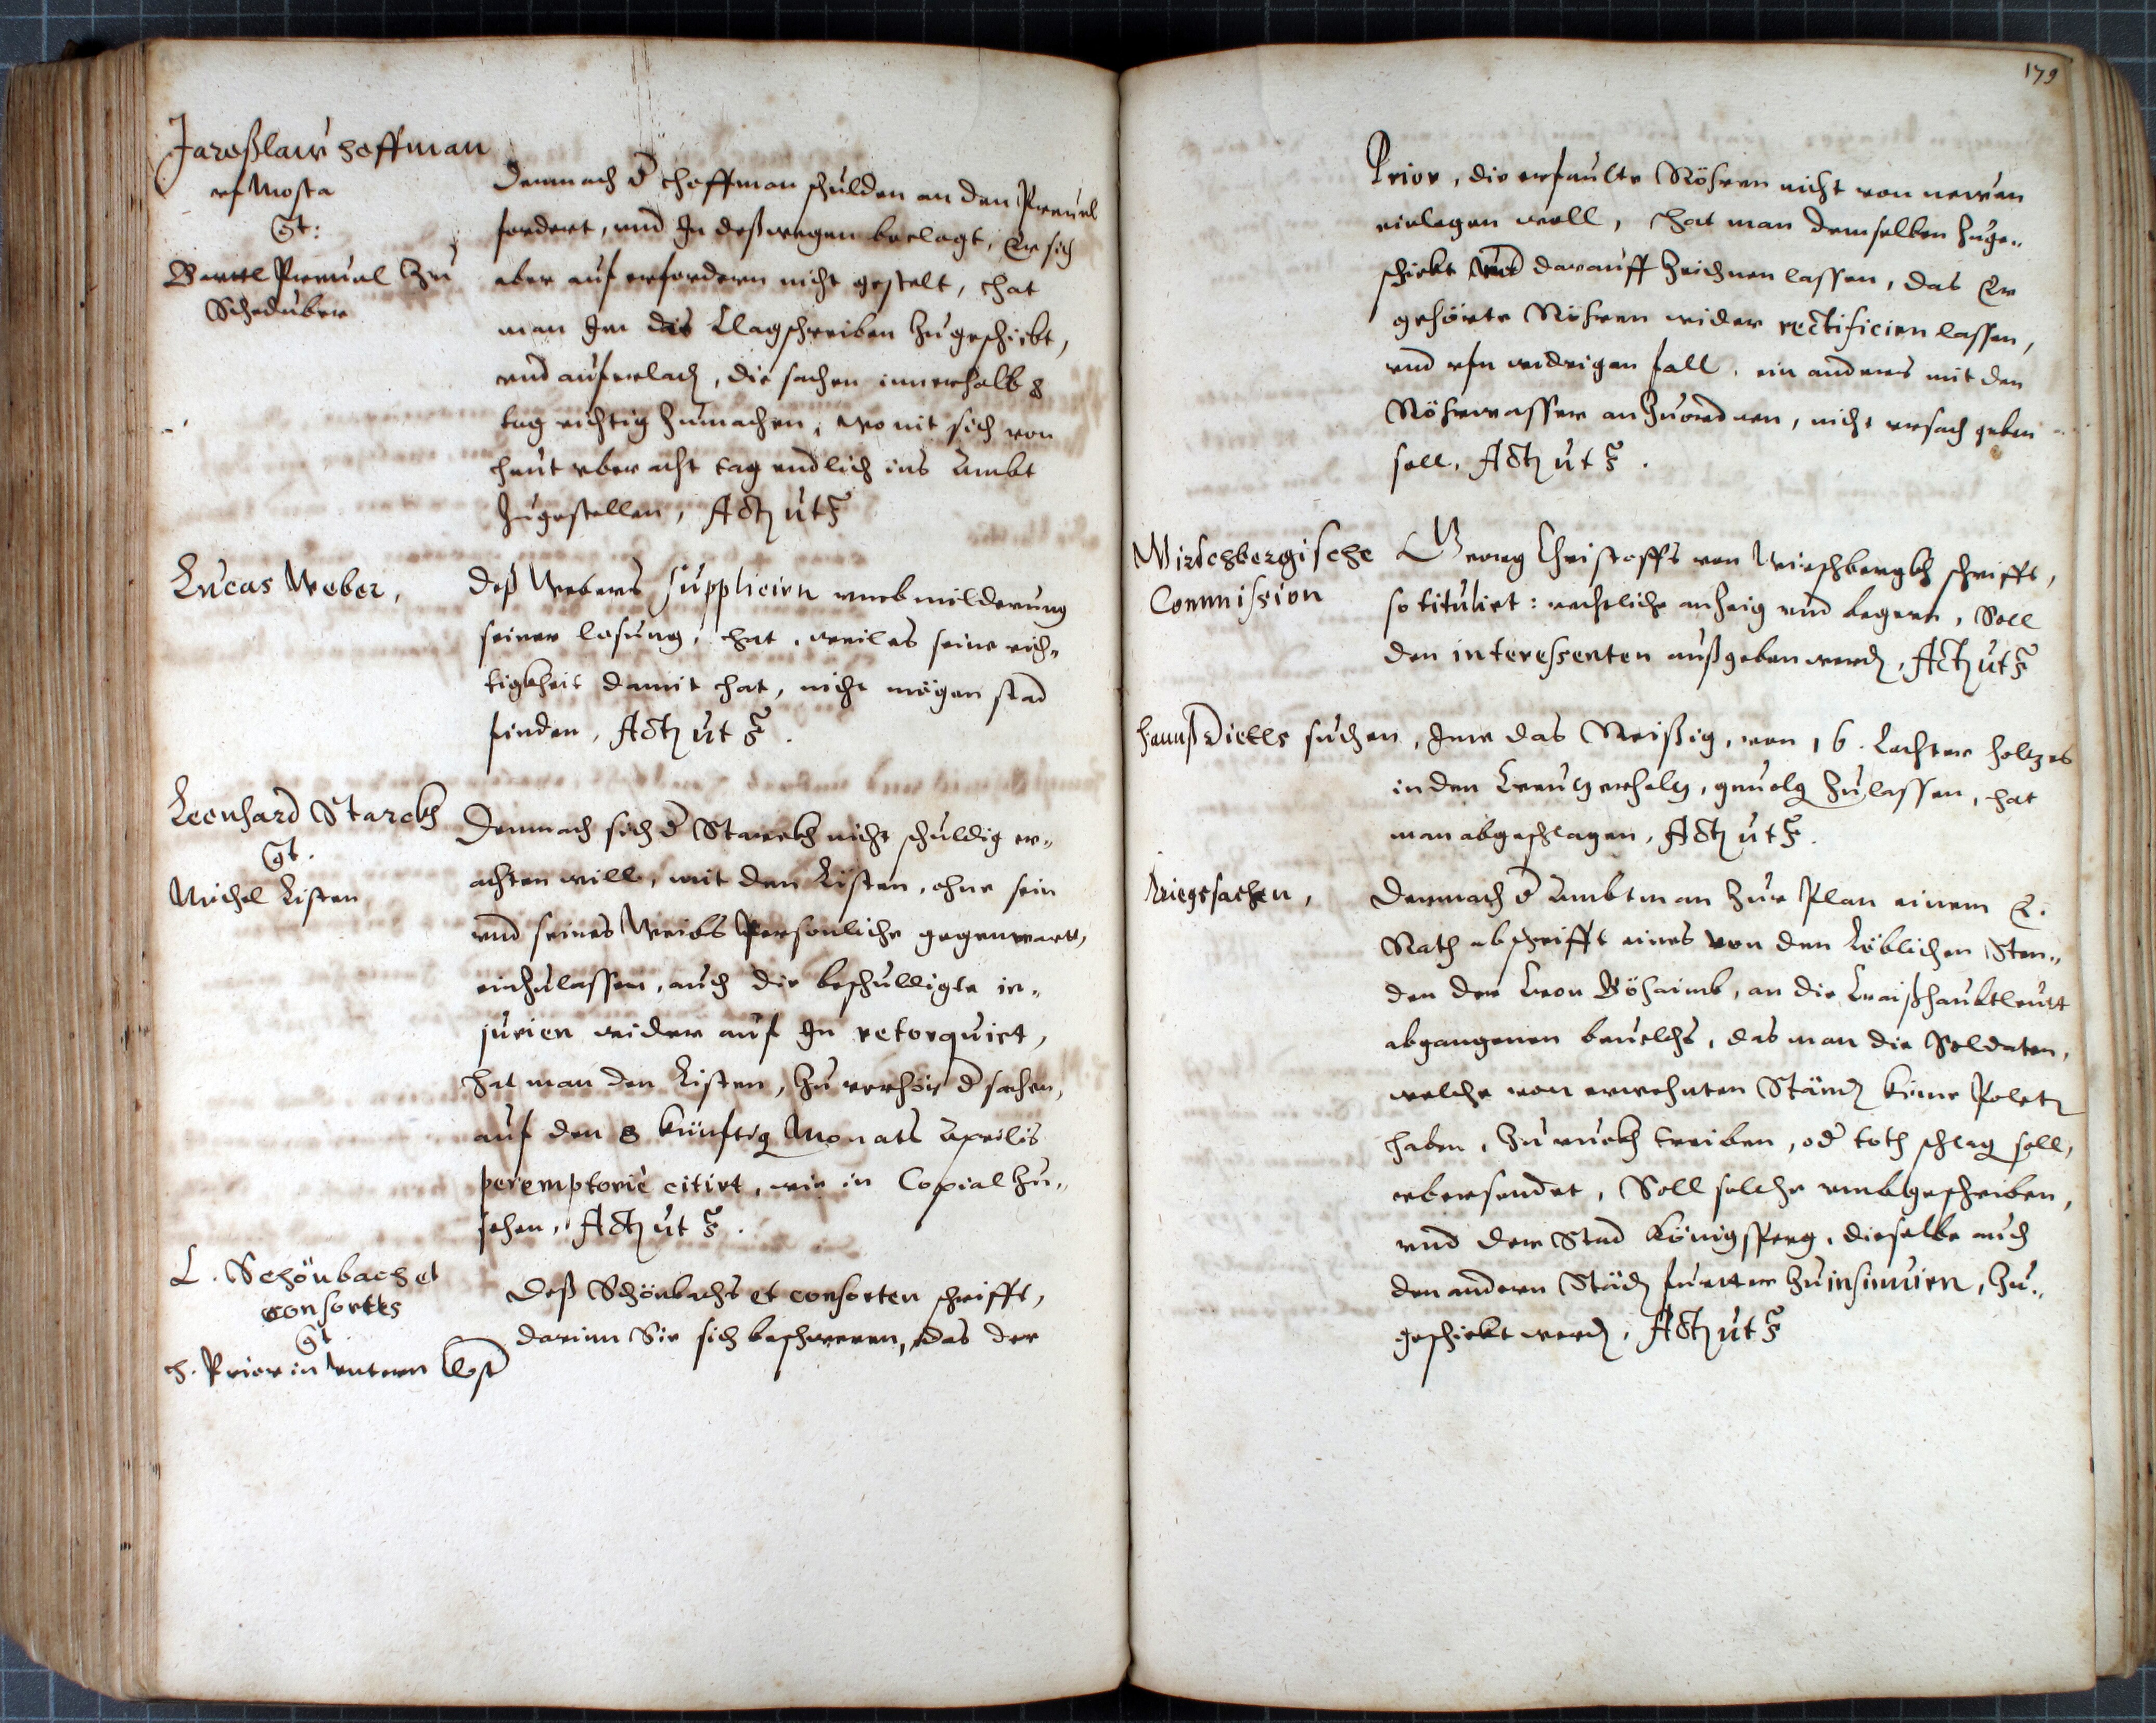 Jaroßlaw Hoffman
uf Mosta
Ct:
Barttl Preuel zu
Scheduber
Demnach d Hoffman schulden an den Preuel
fordert, und In deßwegen beclagt, Er sich
aber auf erfordern nicht gestelt, hat
man Im das Clagschreiben zugeschickt,
und auferlach, die sachen innerhalb 8
tag richtig zumachen, wo nit sich von
heut uber acht tag endlich ins Ambt
zugestellen, Act ut s
Lucas Weber,
Deß Webers suppliciren umb milderung
seiner losung, hat, weil es seine rich„
tigkheit damit hat, nicht mögen stad
finden, Act ut s.
Leonhard Starckh
Ct.
Michel Listen
Demnach sich d Starckh nicht schuldig er„
achten will, mit den Listen, ohne sein
und seines Weibs Persönliche gegenwart,
einzulassen, auch die beschuldigte in„
jurien wider auf In retorquirt,
hat man den Listen, zu verhör d sachen,
auf den 8 künftig Monats Aprilis
peremptoriè citirt, wie in Copial zu„
sehen, Act ut s.
L. Schönbach et
consortes
Ct
H. Prior in untern Clost
Deß Schönbachs et consorten schrifft,
darinn Sie sich beschweren, das der
179
Prior, die erfaulte Röhren nicht von newen
einlegen woll, hat man demselben zuge„
schickt und darauff zeichnen lassen, das Er
gehörte Röhren wider rectificirn lassen,
und ufn widrigen fall, ein anders mit den
Röhrwasser anzuordnen, nicht ursach geben
soll, Act ut s.
Wirschbergische
Commission
Georg Christoffs von Wirschbergkh schrifft,
so titulirt: rechtliche anzeig und begern, Soll
den interessenten außgeben werd, Act ut s
Hannß Dietls suchen, Ime das Reißig, von 16. Lachter holtzes
in den Creutzerholtz, genolg zulassen, hat
man abgeschlagen, Act ut s.
Kriegssachen,
Demnach d Ambtman zur Plan einem E.
Rath abschrifft eines von den Löblichen Sten„
den der Cron Böhaimb, an die Craißhaubtleutt
abgangenen beuelchs, das man die Soldaten,
welche von erwehnten Ständ keine Poletj
haben, zu ruckh treiben, od toth schlag soll,
ubersendet, Soll solche umbgeschriben,
und der Stad Königsperg, dieselbe auch
den andern Städ fürtter zu insinuirn, zu„
geschickt werd, Act ut s